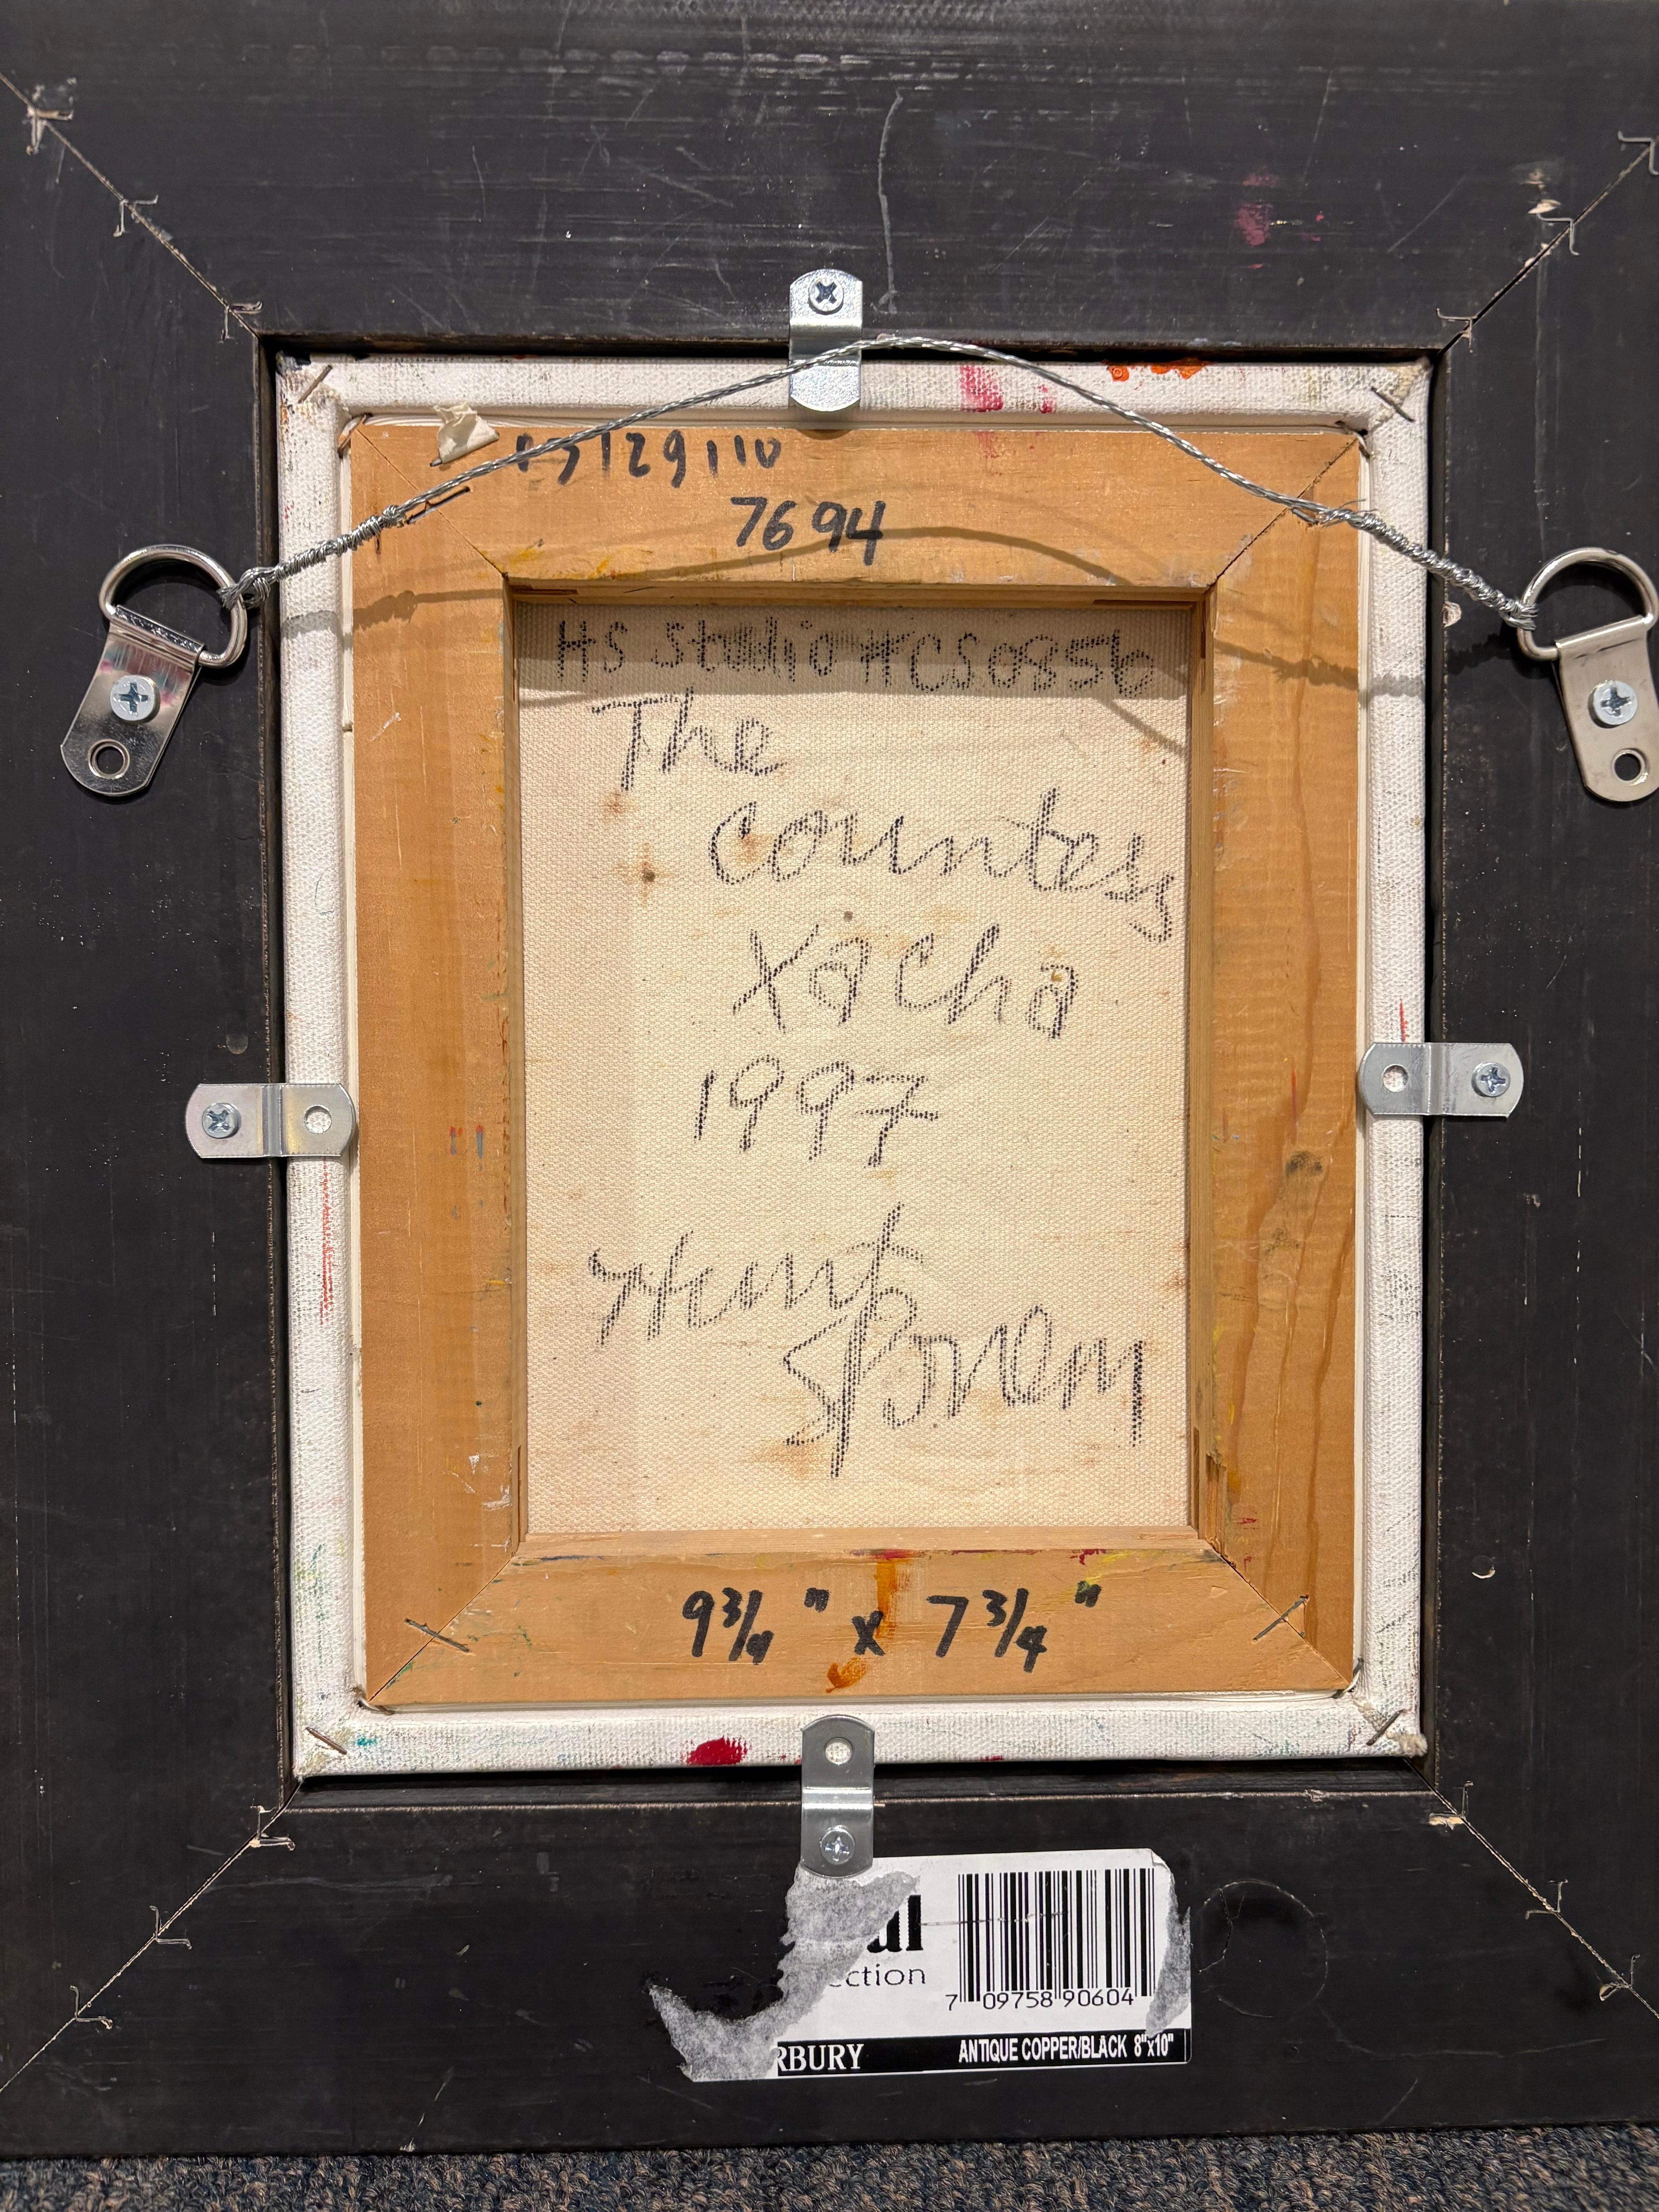 7694
HS Studio # CS0856
The
Countess
Xacha
1997
Hunt
Slonem
9 3/4" x 7 3/4"
ction
7 09758 90604
RBURY ANTIQUE COPPER/BLACK 8"x10"